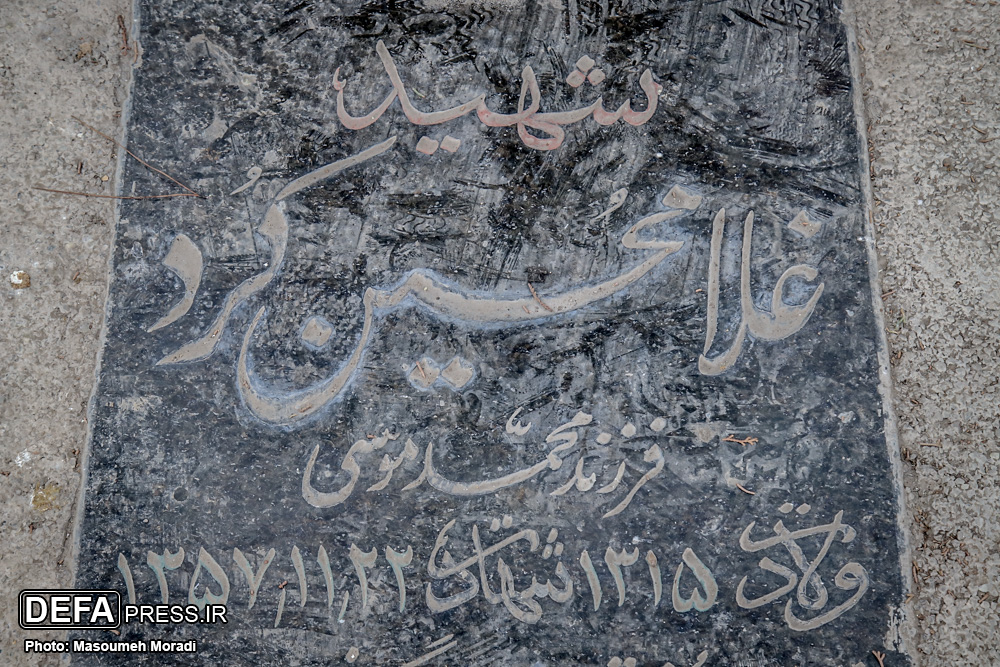 شهید
غلامحسین کُرد
فرزند محمّد موسی
ولادت ۱۳۱۵ شهادت ۱۳۵۷٫۱۱٫۲۲
DEFAPRESS.IR
Photo: Masoumeh Moradi